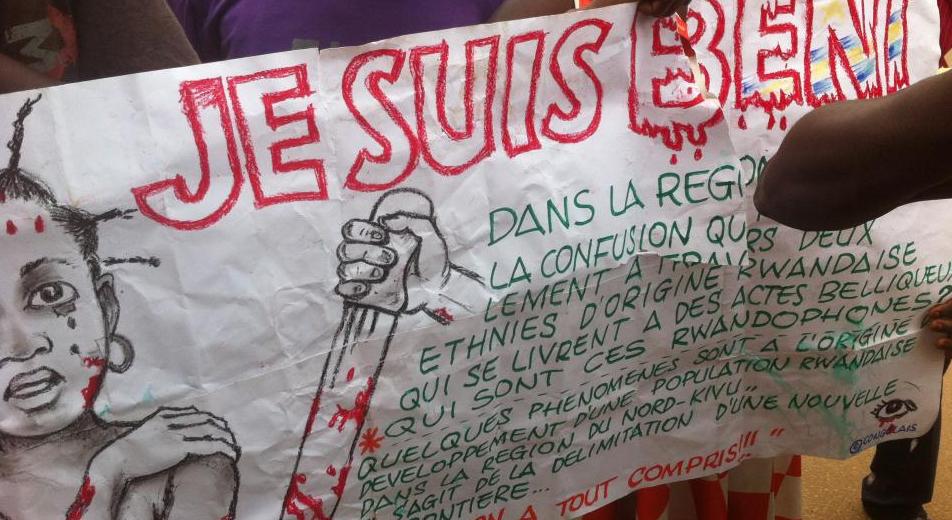 JE SUIS BENI
DANS LA REGIO
LA CONFUSION QU
LEMENT A TRAV RS DEUX
ETHNIES D'ORIGINE RWANDAISE
QUI SE LIVRENT A DES ACTES BELLIQUEU
QUI SONT CES RWANDOPHONES?
* QUELQUES PHENOMENES SONT A L'ORIGINE
DEVELOPPEMENT D'UNE POPULATION RWANDAISE
DANS LA REGION DU NORD-KIVU..
S'AGIT DE LA DELIMITATION D'UNE NOUVELLE
ONTIERE...
N A TOUT COMPRIS!!! "
© CONGOLAIS